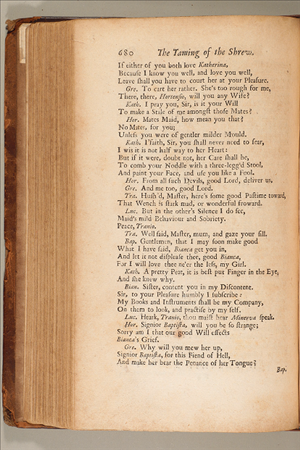 680 The Taming of the Shrew.
If either of you both love Katharina,
Because I know you well, and love you well,
Leave shall you have to court her at your Pleasure.
Gre. To cart her rather. She's too rough for me,
There, there, Hortensio, will you any Wife?
Kath. I pray you, Sir, is it your Will
To make a Stale of me amongst those Mates?
Hor. Mates Maid, how mean you that?
No Mates for you;
Unless you were of gentler milder Mould.
Kath. I'faith, Sir, you shall never need to fear,
I wis it is not half way to her Heart:
But if it were, doubt not, her Care shall be,
To comb your Noddle with a three-legg'd Stool,
And paint your Face, and use you like a Fool.
Hor. From all such Devils, good Lord, deliver us.
Gre. And me too, good Lord.
Tra. Hush'd, Master, here's some good Pastime toward,
That Wench is stark mad, or wonderful froward.
Luc. But in the other's Silence I do see,
Maid's mild Behaviour and Sobriety.
Peace, Tranio.
Tra. Well said, Master, mum, and gaze your fill.
Bap. Gentlemen, that I may soon make good
What I have said, Bianca get you in,
And let it not displease thee, good Bianca,
For I will love thee ne'er the less, my Girl.
Kath. A pretty Peat, it is best put Finger in the Eye,
And she knew why.
Bian. Sister, content you in my Discontent.
Sir, to your Pleasure humbly I subscribe:
My Books and Instruments shall be my Company,
On them to look, and practise by my self.
Luc. Heark, Tranio, thou maist hear Minerva speak.
Hor. Signior Baptista, will you be so strange;
Sorry am I that our good Will effects
Bianca's Grief.
Gre. Why will you mew her up,
Signior Baptista, for this Fiend of Hell,
And make her bear the Penance of her Tongue?
Bap.